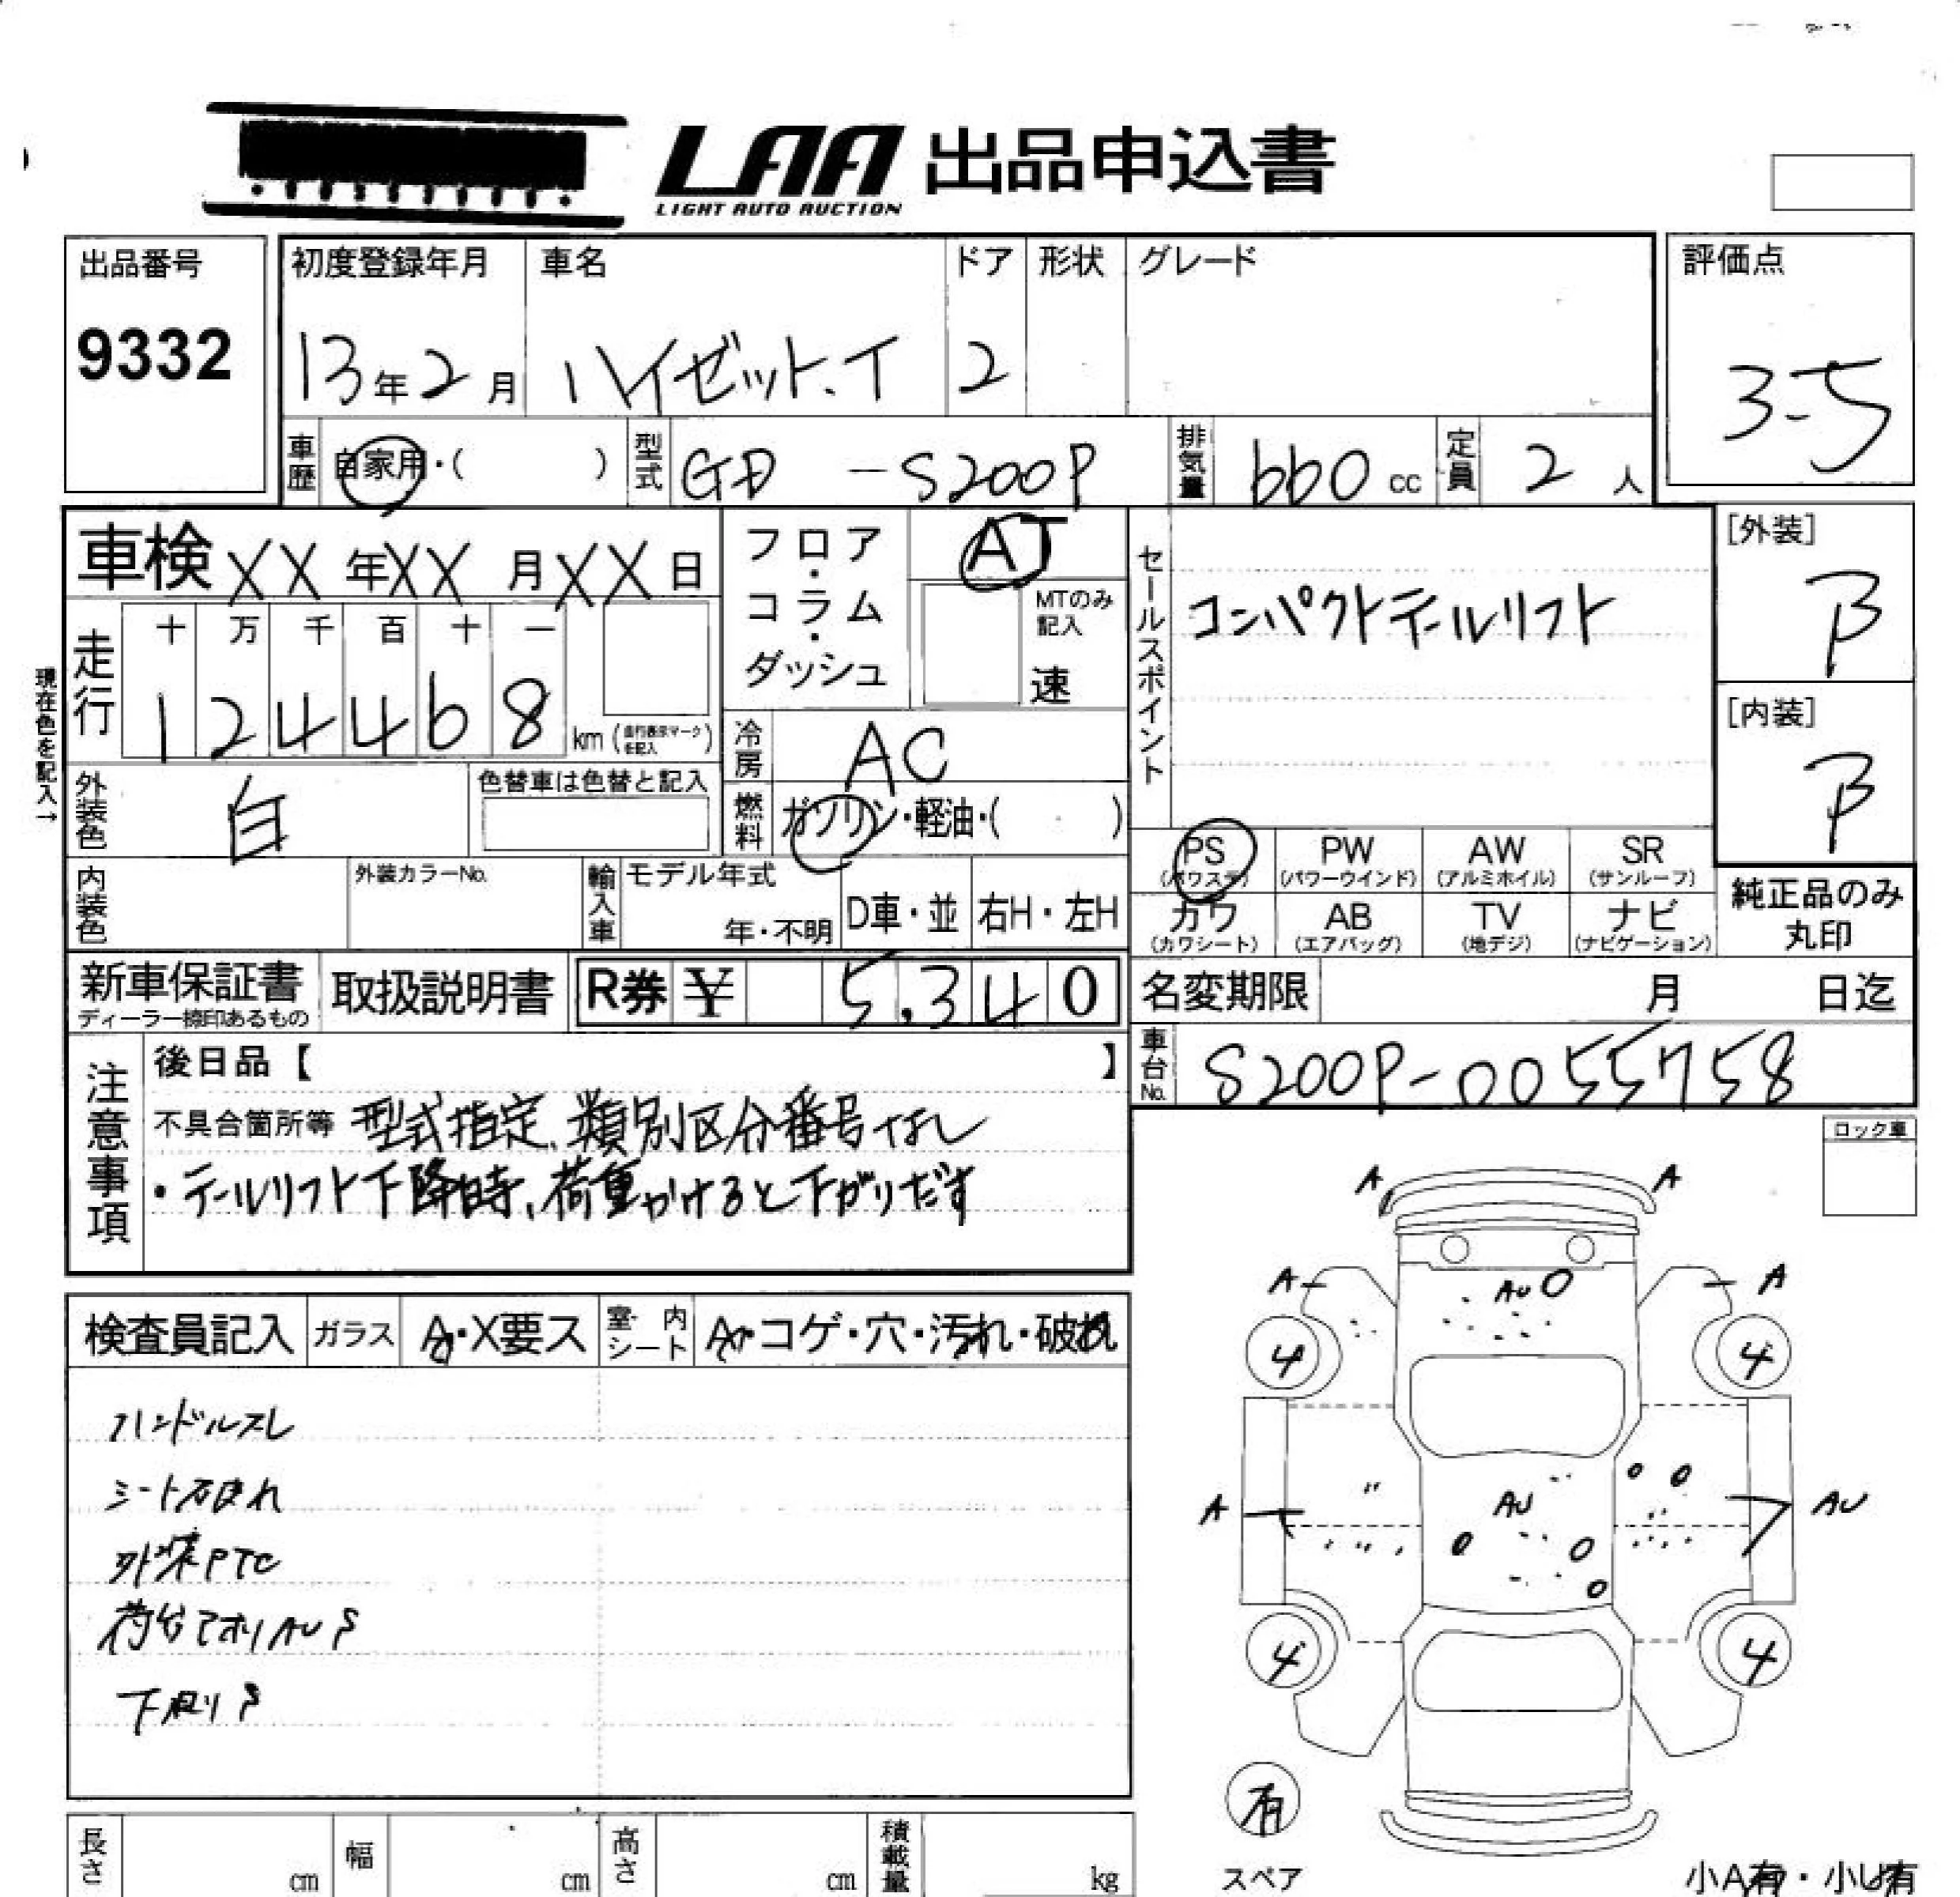 LAA 出品申込書
LIGHT AUTO AUCTION
出品番号
9332
初度登録年月 車名 ドア 形状 グレード
13年2月 ハイゼット.T 2
評価点
3-5
車歴 自家用・( ) 型式 GD -S200P 排気量 660 cc 定員 2 人
車検 XX 年 XX 月 XX 日
フロア・コラム・ダッシュ
AT
MTのみ記入
速
セールスポイント
コンパクトテールリフト
[外装]
B
[内装]
B
現在色を記入→
走行
十 万 千 百 十 一
1 2 4 4 6 8 km (走行表示マークを記入)
冷房 AC
燃料 ガソリン・軽油・( )
外装色 白
色替車は色替と記入
内装色
外装カラーNo.
輸入車 モデル年式
年・不明 D車・並 右H・左H
PS (パワステ) PW (パワーウインド) AW (アルミホイル) SR (サンルーフ)
カワ (カワシート) AB (エアバッグ) TV (地デジ) ナビ (ナビゲーション)
純正品のみ
丸印
新車保証書
ディーラー捺印あるもの
取扱説明書
R券 ¥ 5,340
名変期限 月 日迄
車台No. S200P-0055758
注意事項
後日品【 】
不具合箇所等 型式指定、類別区分番号なし
・テールリフト下降時、荷重かけると下がりだす
ロック車
検査員記入 ガラス A・X要ス 室内シート A・コゲ・穴・汚れ・破れ
ハンドルスレ
シート汚れ
外装PTC
荷台アオリAUS
下廻りS
A A
A A
AU
4 4
A AU AU
4 4
有
スペア
小A有・小U有
長さ cm 幅 cm 高さ cm 積載量 kg